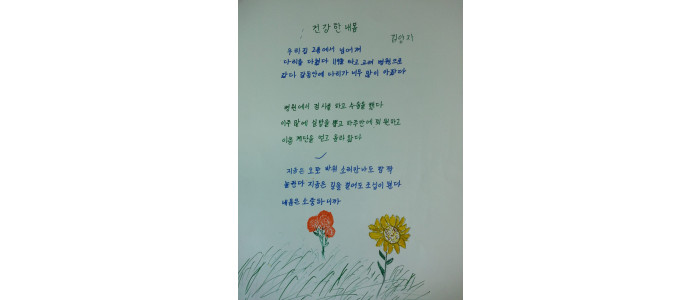 건강한 내몸
김안지
우리집 2층에서 넘어져
다리를 다쳤다 119를 타고 고려 병원으로
갔다 갈동안에 다리가 너무 많이 아팠다
병원에서 검사를 하고 수술을 했다
이주 말에 실밥을 뽑고 하루만에 퇴원하고
이층 계단을 업고 올라 왔다
지금은 오토바이 소리만나도 깜짝
놀란다 지금은 길을 걸어도 조심이 된다
내몸은 소중하니까